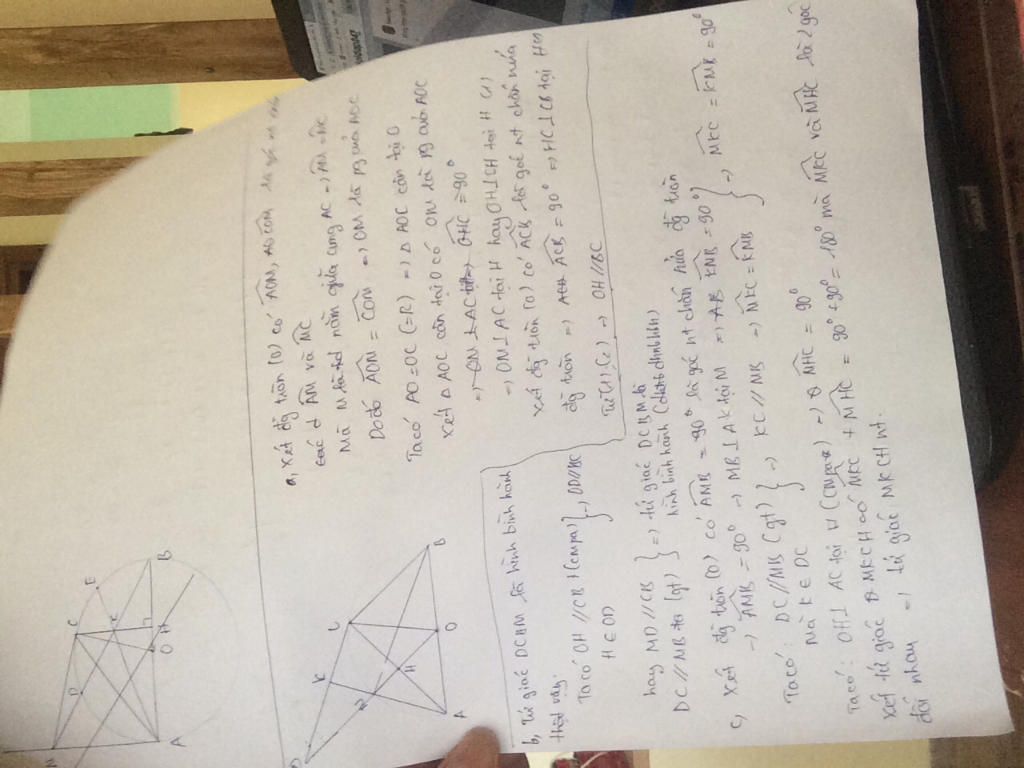 a, Xét đg tròn (O) có AOM, COM là góc
góc ở AM và MC
Mà M là td nằm giữa cung AC → AM = MC
Do đó AOM = COM => OM là pg của AOC
Ta có AO = OC (=R) => Δ AOC cân tại O
Xét Δ AOC cân tại O có OM là pg của AOC
=> OM ⊥ AC => OHC = 90°
→ OM ⊥ AC tại H hay OH ⊥ CH tại H (1)
Xét đg tròn (O) có ACB là góc nt chắn nửa
đg tròn => ACB = 90° => HC ⊥ CB tại
Từ (1), (2) → OH // BC
b, Tứ giác DCBM là hình bình hành
thật vậy.
Ta có OH // CB (cmpa) } → OD // BC
H ∈ OD
hay MD // CB } => tứ giác DCBM là
DC // MB (gt) hình bình hành (dhnb hbh)
c, Xét đg tròn (O) có AMB = 90° là góc nt chắn nửa đg tròn
→ AMB = 90° → MB ⊥ AK tại M => KMB = 90°
Ta có: DC // MB (gt) } → KC // MB → MKC = KMB } → MKC = KMB = 90°
Mà K ∈ DC
Ta có: OH ⊥ AC tại H (cmpa) → MHC = 90°
Xét tứ giác MKCH có MKC + MHC = 90° + 90° = 180° mà MKC và MHC là 2 góc
đối nhau => tứ giác MKCH nt.
D
C
E
A
O
H
B
K
C
D
H
A
O
B